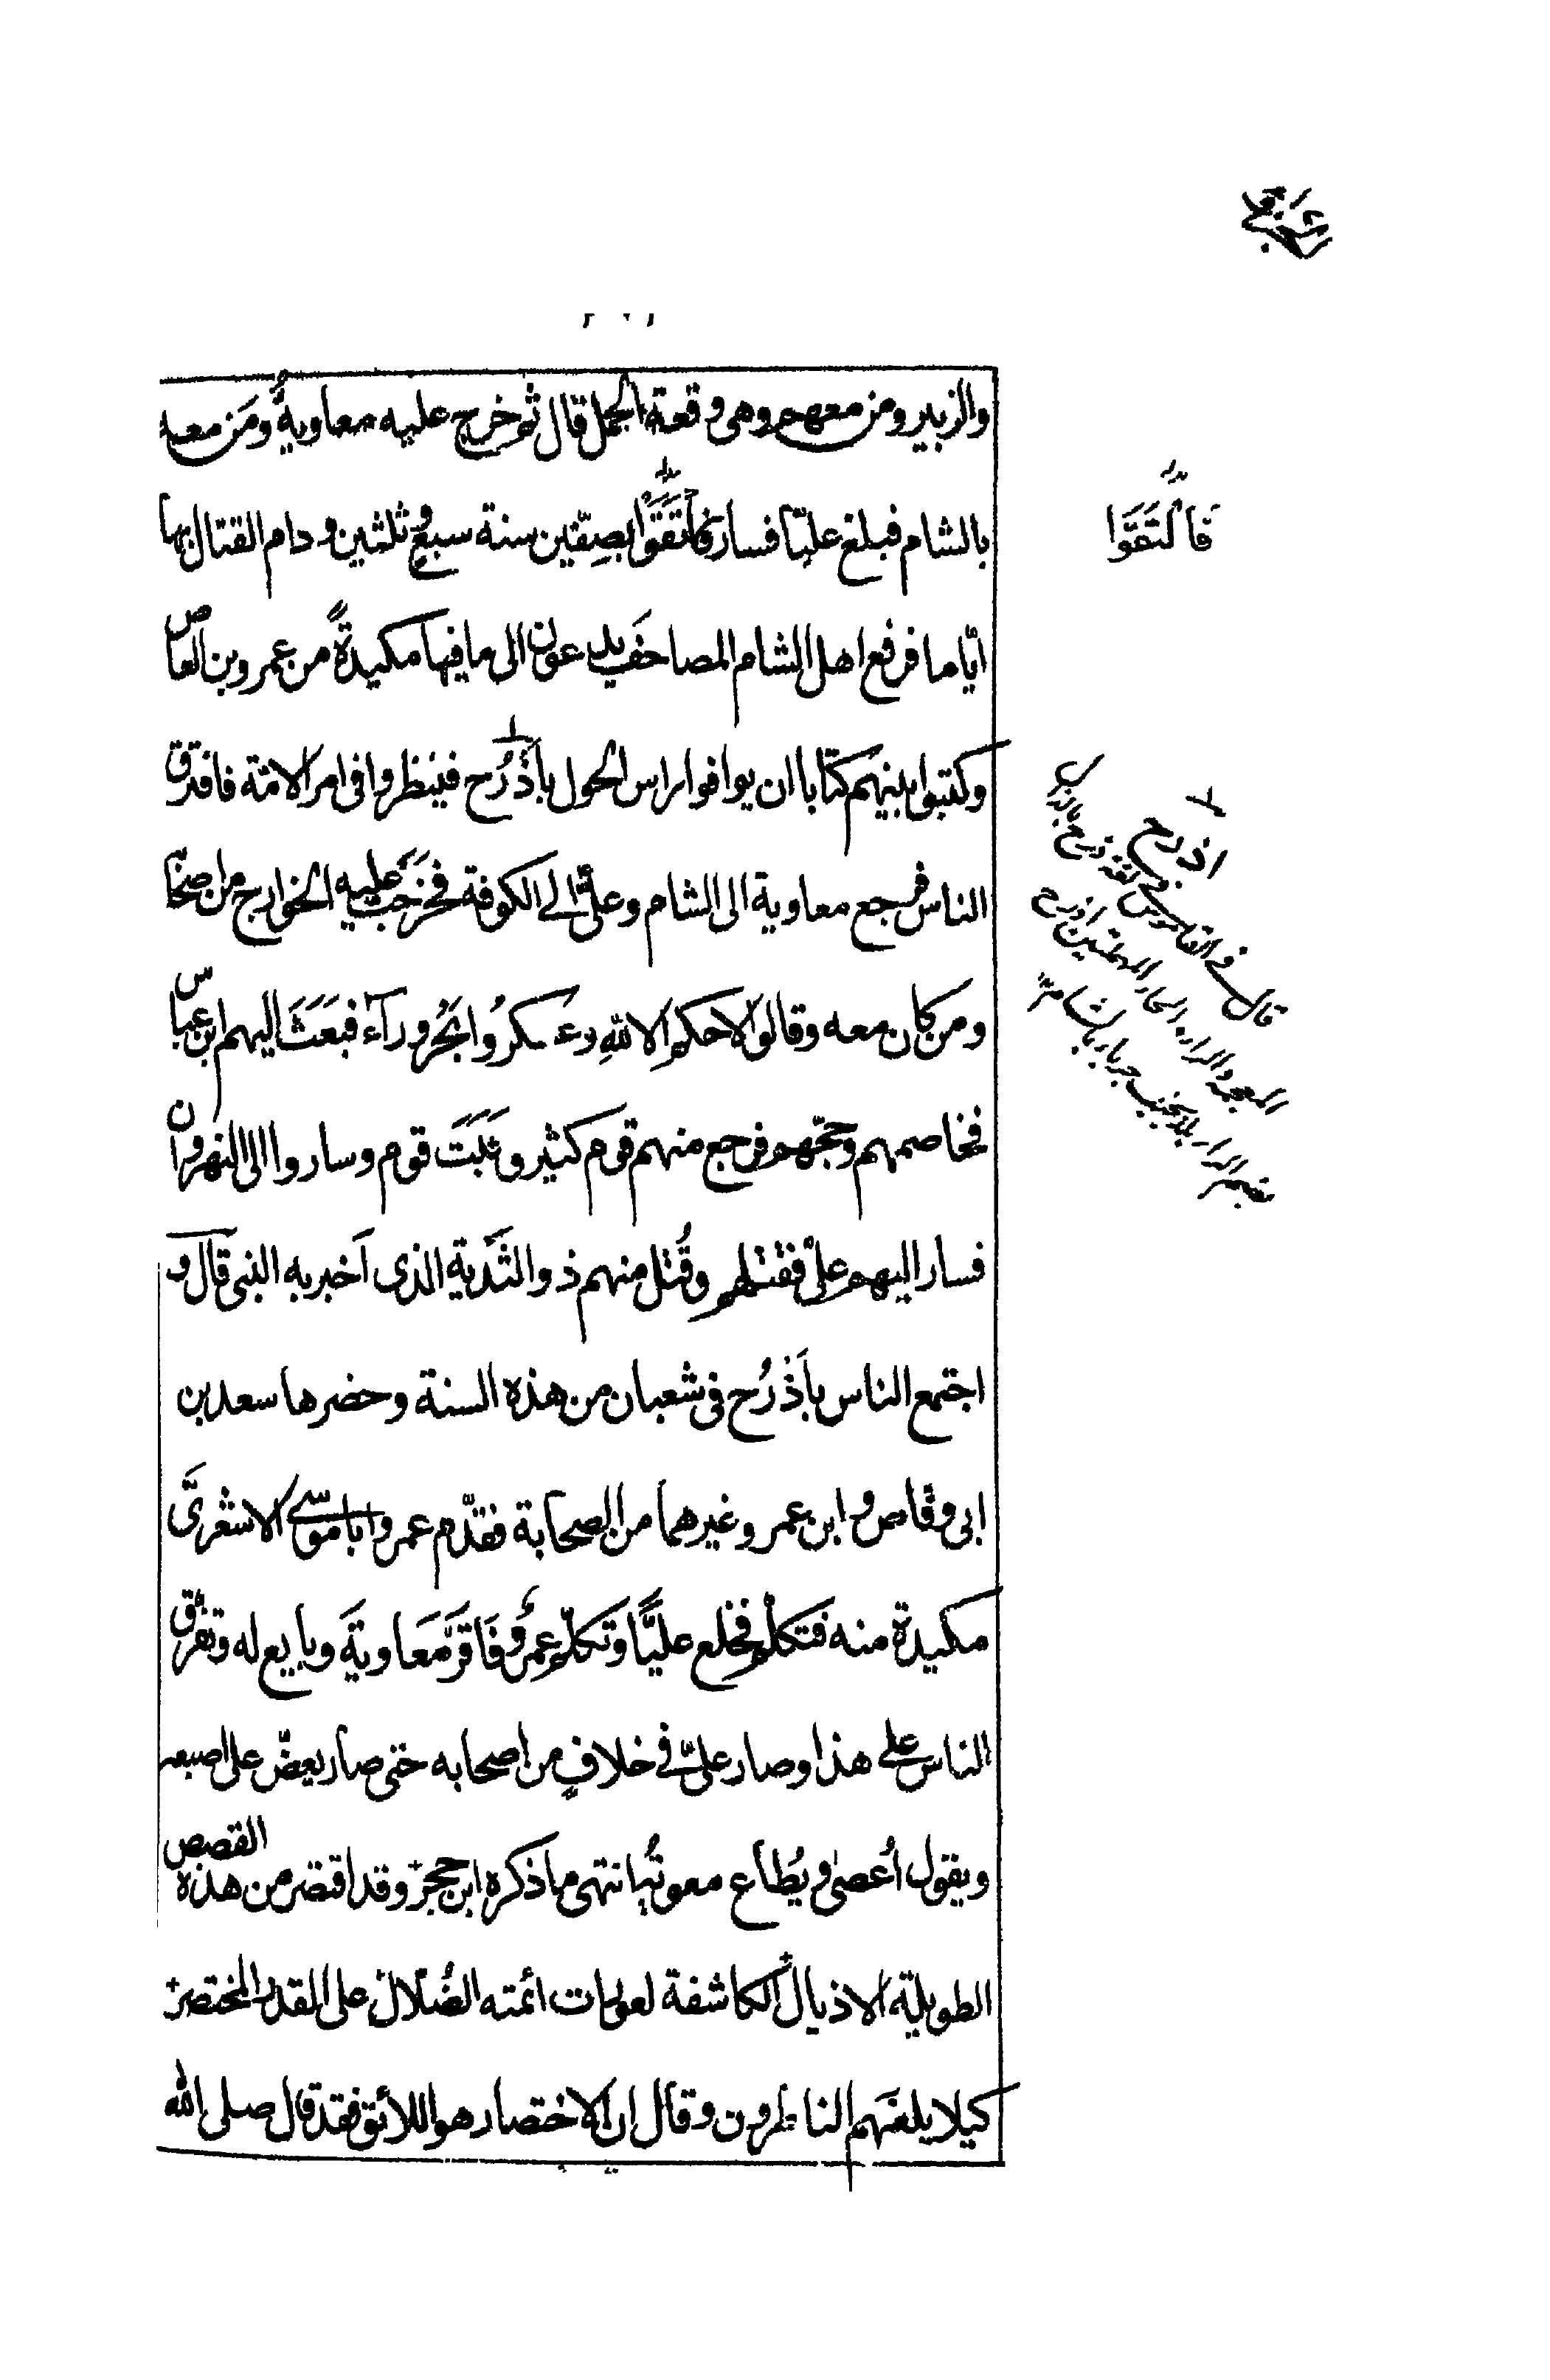 والزبير ومن معهم وهى وقعة الجمل قال ثم خرج عليه معاويةُ ومَن معه
بالشام فبلغ عليّا فسار فالتَقَوْا بصِفّين سنة سبعٍ وثلثين ودام القتال بها
ايّاما فرفع اهل الشام المصاحفَ يدعون الى ما فيها مكيدةً من عمرو بن العاص
وكتبوا بينهم كتابا ان يوافوا راس الحول باَذْرُح فينظروا فى امر الامّة فافترق
الناس فرجع معاوية الى الشام وعلىٌّ الى الكوفة فخرَجَت عليه الخوارج من اصحابه
ومن كان معه وقالوا لا حكم الا للهِ وعسكرُوا بحُروراَءَ فبَعَثَ اليهم ابن عباس
فخاصمهم وحجّهم فرجع منهم قوم كثير وثَبَتَ قوم وساروا الى النهروان
فسار اليهم علىٌّ فقتلهم وقُتل منهم ذو الثُدَيَّة الذى اَخبر به النبى قال و
اجتمع الناس باَذْرُح فى شعبان من هذه السنة وحضرها سعد بن
ابى وقاص وابن عمر وغيرهما من الصحابة فقدّم عمرو ابا موسى الاشعرىَّ
مكيدة منه فتكلم فخلع عليًّا وتكلّم عمرٌو فَاَقرَّ مَعَاويةَ وبايع له وتفرق
الناس على هذا وصار علىٌّ فى خلافٍ من اصحابه حتى صار يعضّ على اصبعه
ويقول اُعصىٰ ويُطاع معويةُ انتهى ما ذكره ابن حجر وقد اقتصر من هذه القصص
الطويلة الاذيال الكاشفة لعورات ائمته الضُلّال على القدر المختصر
كيلا يلعنهم الناظرون وقال ان الاختصار هو اللائق فقد قال صلى الله
فَالْتَقَوْا
اذرح
قال فى القاموس فى لغة ذرح بالذال
المعجمة والراء والحاء المهملتين اذرح
بضم الراء بلد بجنب جرباء بالشام